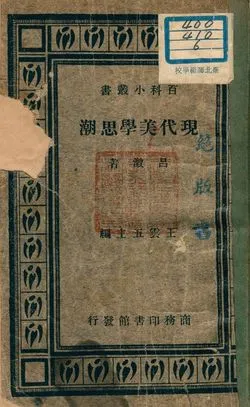 400
410
6
臺北師範學校
百科小叢書
現代美學思潮
呂澂著
王雲五主編
商務印書館發行
絕版書